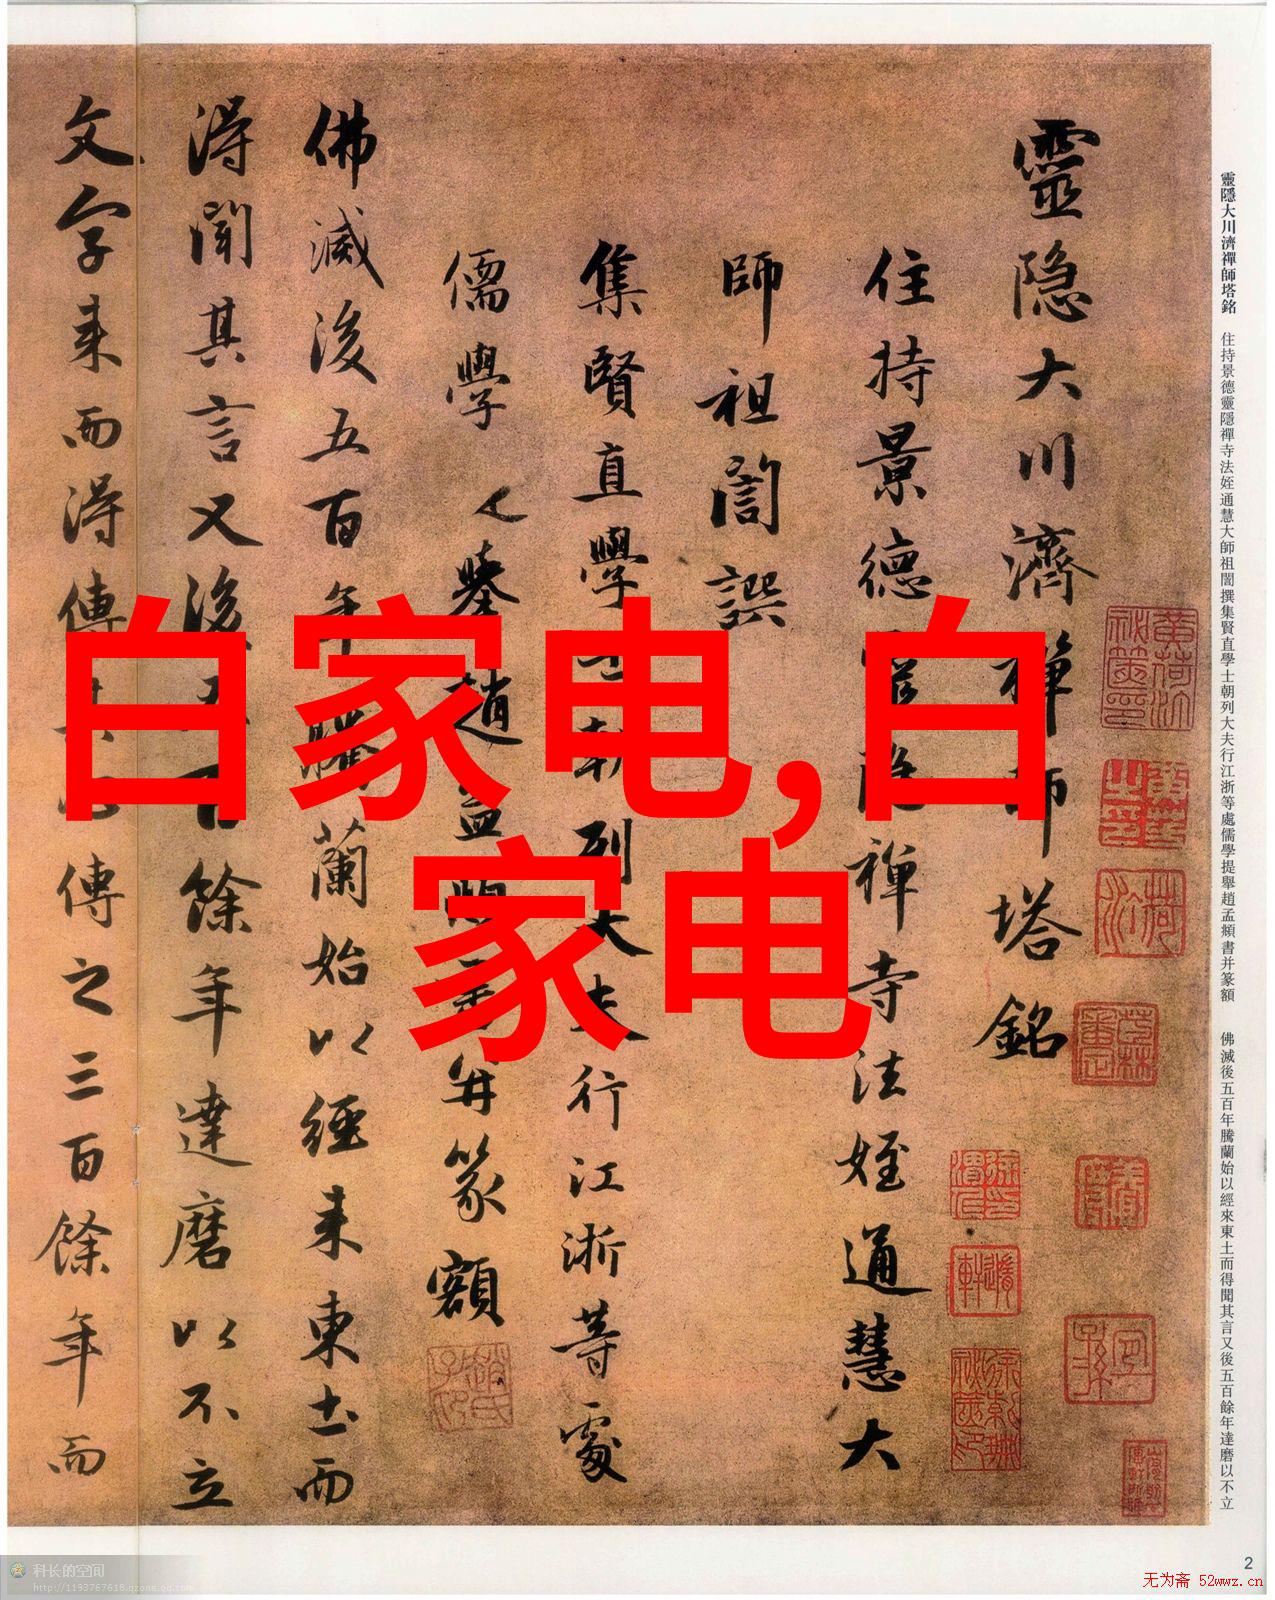 靈隐大川濟禅師塔銘
住持景德靈隐禅寺法姪通慧大
師祖誾譔
集賢直學士朝列大夫行江浙等處
儒學提舉趙孟頫書并篆額
佛滅後五百年騰蘭始以經来東土而
得聞其言又後五百餘年達磨以不立
文字来而得傳
傳之三百餘年而
靈隱大川濟禪師塔銘 住持景德靈隱禪寺法姪通慧大師祖誾撰集賢直學士朝列大夫行江浙等處儒學提舉趙孟頫書并篆額 佛滅後五百年騰蘭始以經來東土而得聞其言又後五百餘年達磨以不立
白家电,白
家电
2
科长的空间
http://1193767618.qzone.qq.com
无为斋 52wwz.cn